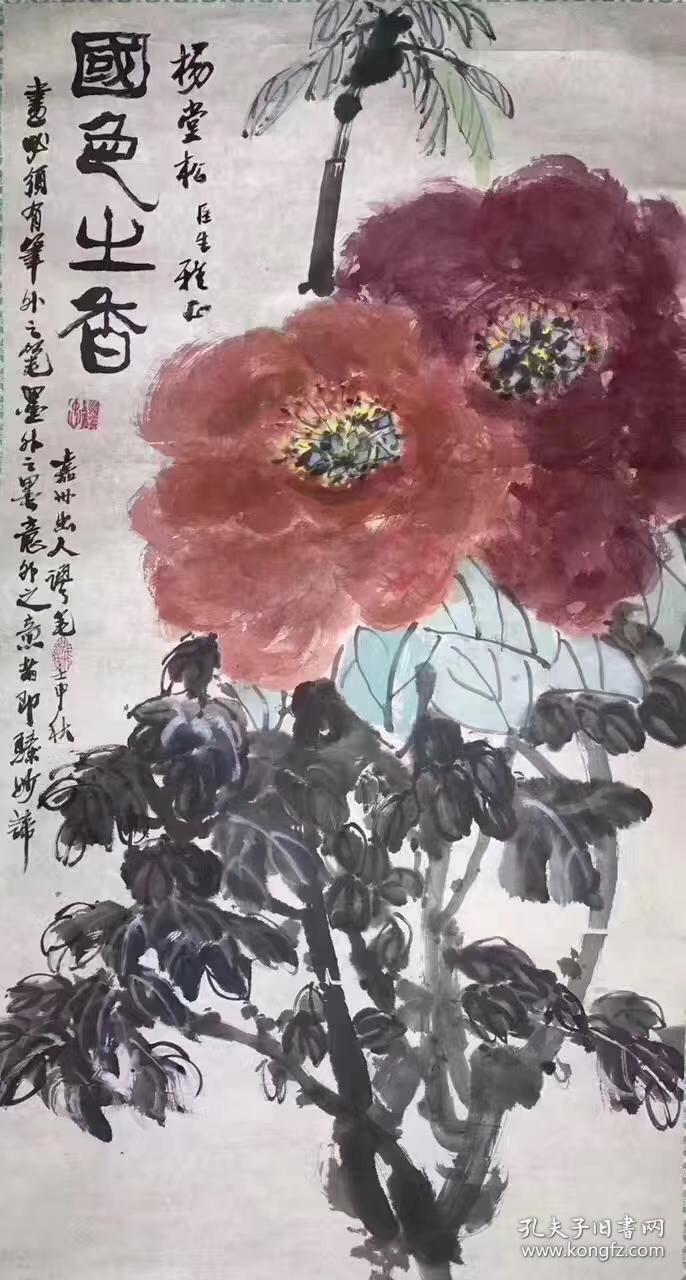 楊堂松医生雅正
國色之香
畫必須有筆外之筆墨外之墨意外之意者即臻妙諦
嘉州出人謬笔
壬申秋
孔夫子旧书网
www.kongfz.com